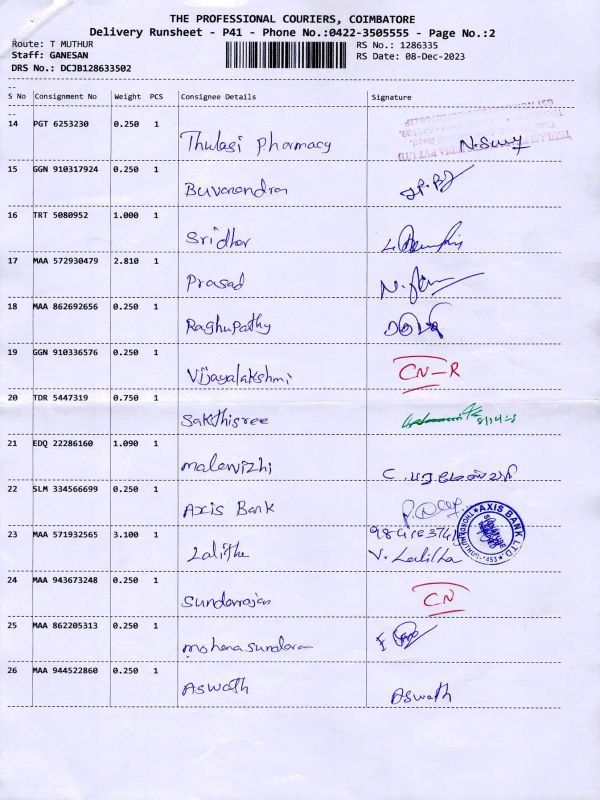 THE PROFESSIONAL COURIERS, COIMBATORE
Delivery Runsheet - P41 - Phone No.:0422-3505555 - Page No.:2
Route: T MUTHUR
RS No.: 1286335
Staff: GANESAN
RS Date: 08-Dec-2023
DRS No.: DCJB128633502
S No Consignment No Weight PCS Consignee Details Signature
14 PGT 6253230 0.250 1
Thulasi Pharmacy
15 GGN 910317924 0.250 1
Buvanendran
16 TRT 5080952 1.000 1
Sridhar
17 MAA 572930479 2.810 1
Prasad
18 MAA 862692656 0.250 1
Raghupathy
19 GGN 910336576 0.250 1
Vijayalakshmi CN-R
20 TDR 5447319 0.750 1
Sakthisree
21 EDQ 22286160 1.090 1
Malarvizhi
22 SLM 334566699 0.250 1
Axis Bank
AXIS BANK LTD
23 MAA 571932565 3.100 1
Lalitha V. Lalitha
24 MAA 943673248 0.250 1
Sundarrajan CN
25 MAA 862205313 0.250 1
Mohanasundaram
26 MAA 944522860 0.250 1
Aswath Aswath